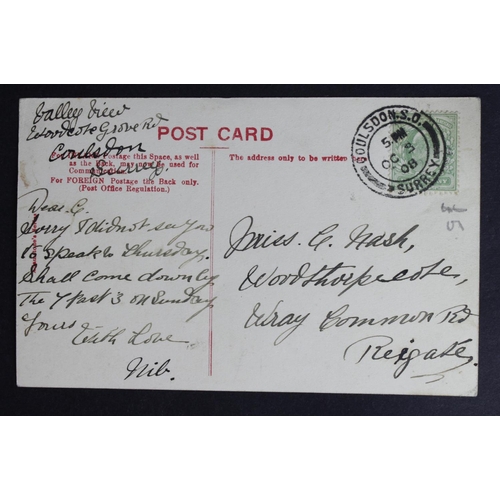 Valley View
Woodcote Grove Rd
Coulsdon
Surrey.
POST CARD
For INLAND Postage this Space, as well
as the Back, may now be used for
Communication.
For FOREIGN Postage the Back only.
(Post Office Regulation.)
The address only to be written
COULSDON. S.O.
5 PM
OC 2
08
SURREY
Dear G.
Sorry I did not see you
to speak to Thursday.
Shall come down by
The 7 past 3 on Sunday
Yours
With Love
Nib.
Miss. G. Nash,
Woodthorpe cote,
Wray Common Rd
Reigate.